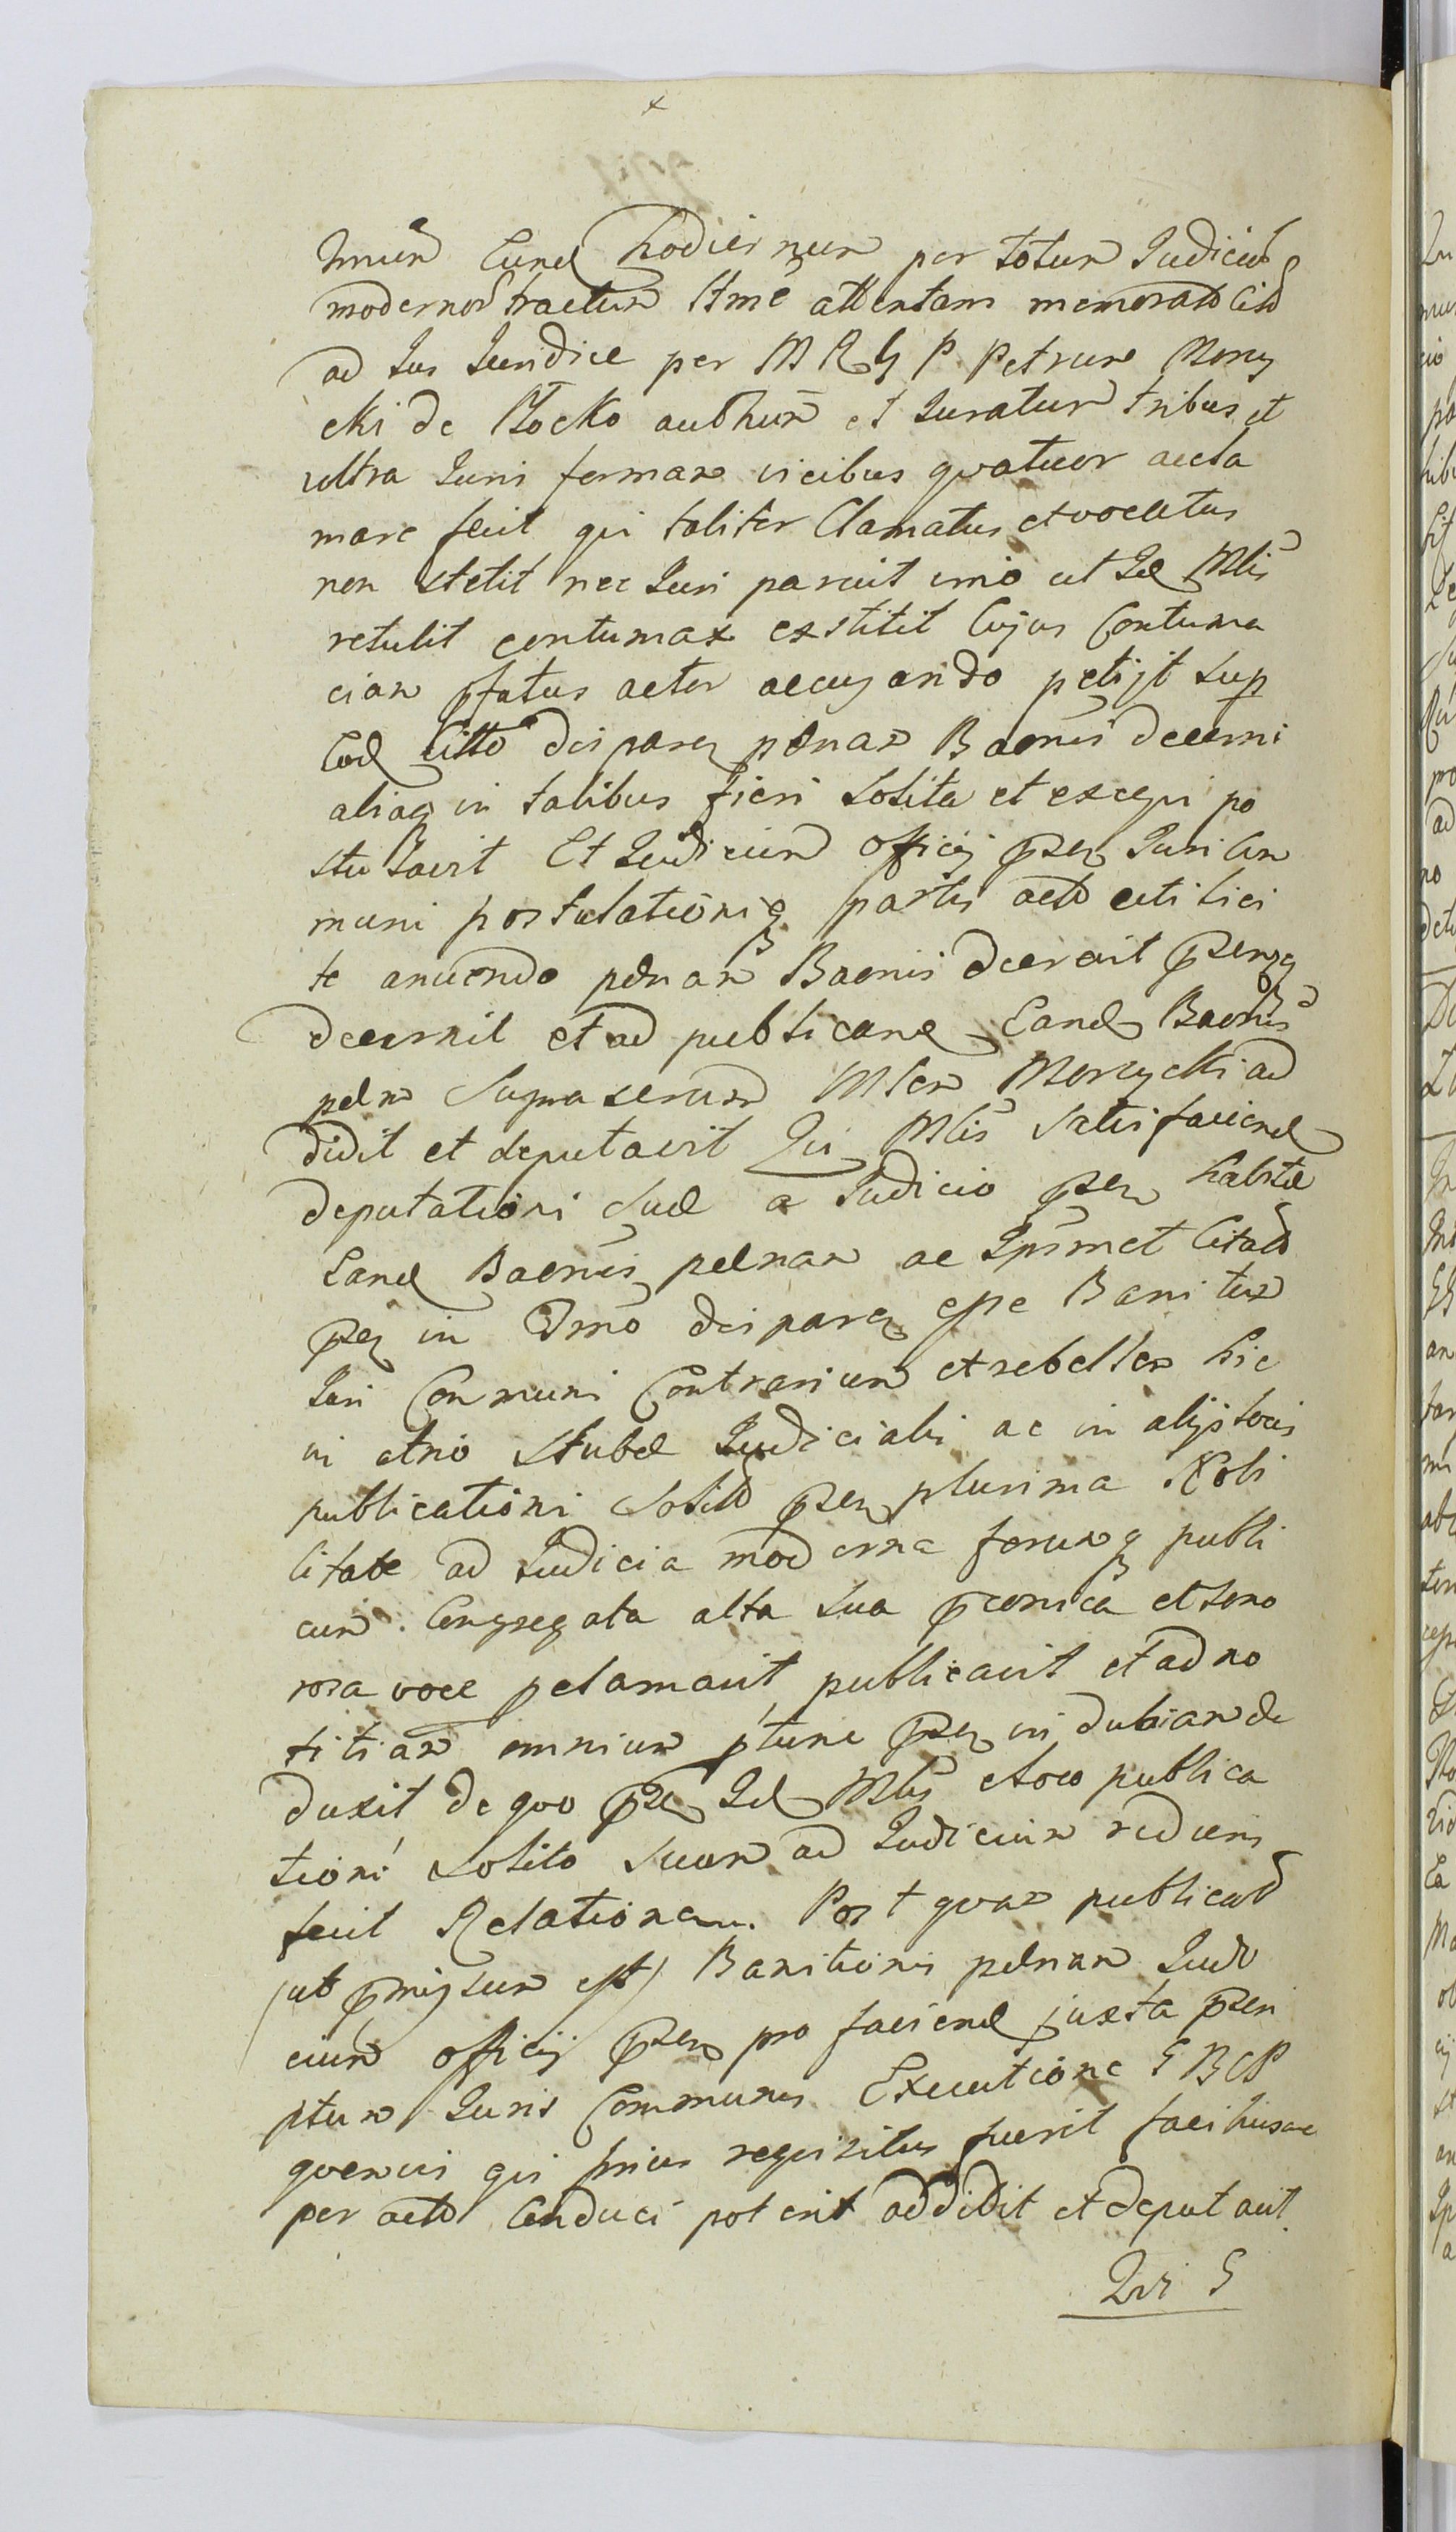 Tmũn Eund hodiernum per totum Judiciō
modernor tractum Ltmē attentam memorato Cito
ad Jus Juridice per M R G P. Petrum Mory
cki de Płocko authũm et Juratum tribus et
ultra Juri formam vicibus quatuor accla
mare fecit qui taliter Clamatus et vocatus
non stetit nec Juri paruit imo ut Id Mlis
retulit contumax exstitit Cujus Contuma
ciam pfatus actor accusando petijt sup
Eod Citto disparen pœnam Baonis decerni
aliaq in talibus fieri solita et exequi po
stulavit Et Judicium officij psen Juri Com
muni postulationiq partis acto uti lici
te anuendo pœnam Baonis decrevit psenq
decernit et ad publicand Eand Baonis
pœn Supraserum Mlem Morycki ad
didit et deputavit Qui Mlis satisfaciend
deputationi Suæ a Judicio psen habitæ
Eand Baonis pœnam ac Ipsmet Citato
psen in Tmo disparen esse Banitum
Juri Communi Contrarium et rebellem hic
in atrio Stubæ Judicialis ac in alijs locis
publicationi Solito psen plurima Nobi
litate ad Judicia moderna forumq publi
cum. Congregata alta sua pconica et sono
rosa voce pclamavit publicavit et ad no
titiam omnium ptunc psen indubiam de
duxit de quo psen Id Mlis a loco publica
tioni solito suum ad Judicium rediens
fecit Relationem. Post quam publicato
(ut pmissum est) Banitionis pœnam Judi
cium officij psen pro faciend juxta pscri
ptum Juris Communis Executione G B C P
quemvis qui prius requisitus fuerit faciliusve
per acto Conduci poterit addidit et deputavit.
Qvi G